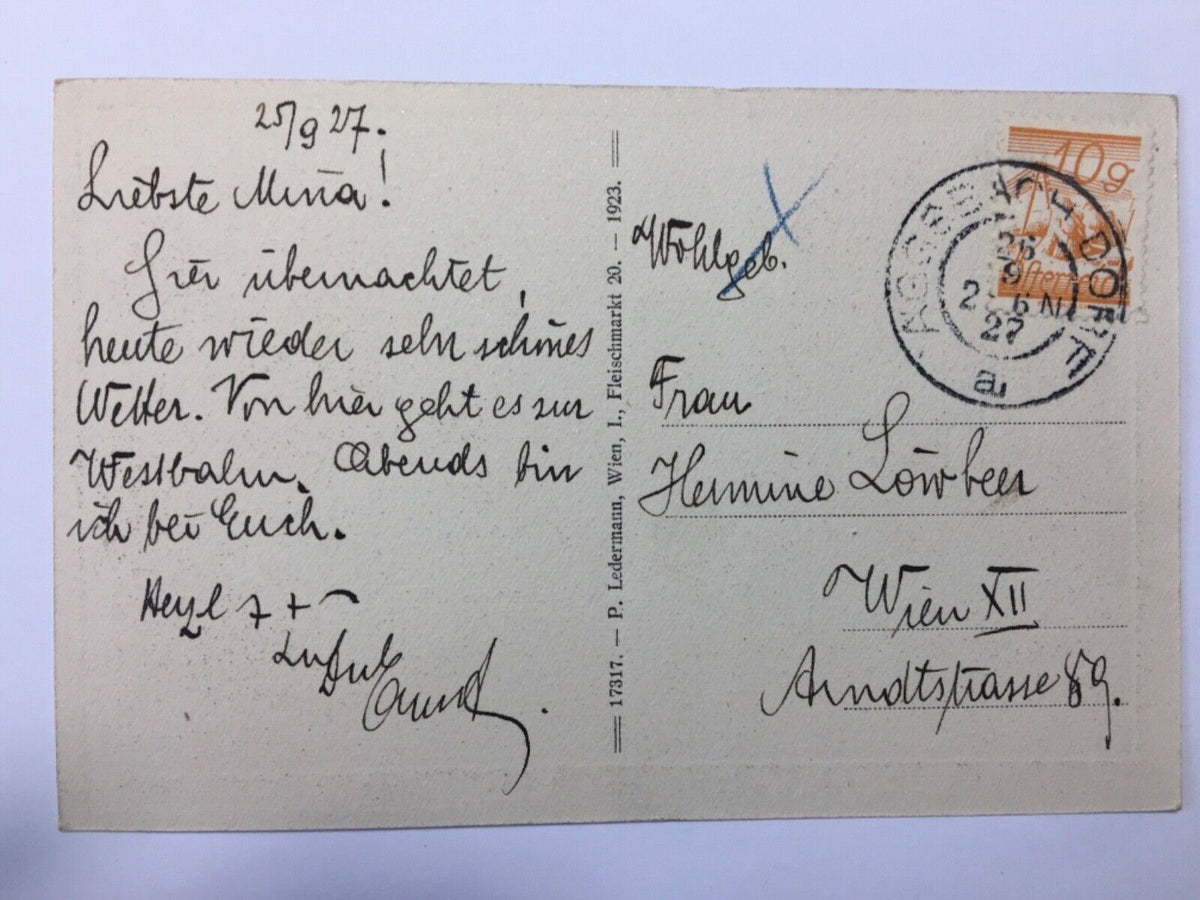 25/9 27.
Liebste Mina!
Hier übernachtet,
heute wieder sehr schönes
Wetter. Von hier geht es zur
Westbahn. Abends bin
ich bei Euch.
Herzl
Ernst
17317. — P. Ledermann, Wien, I., Fleischmarkt 20. — 1923.
Wohlgeb.
Frau
Hermine Löwbeer
Wien XII
Arndtstrasse 89.
10g
Österreich
AGGSBACH DORF
26
9
27
a